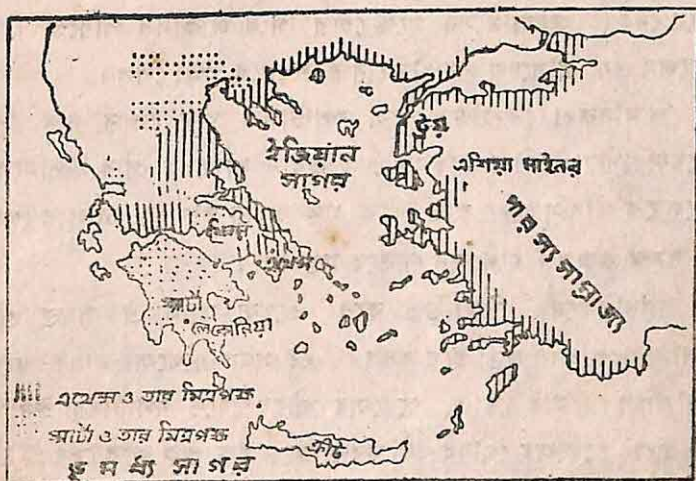 ইজিয়ান
সাগর
ট্রয়
এশিয়া মাইনর
পারস্য সাম্রাজ্য
থিবস
এথেন্স
স্পার্টা
লেকোনিয়া
এথেন্স ও তার মিত্রপক্ষ
স্পার্টা ও তার মিত্রপক্ষ
ভূমধ্য সাগর
ক্রীট